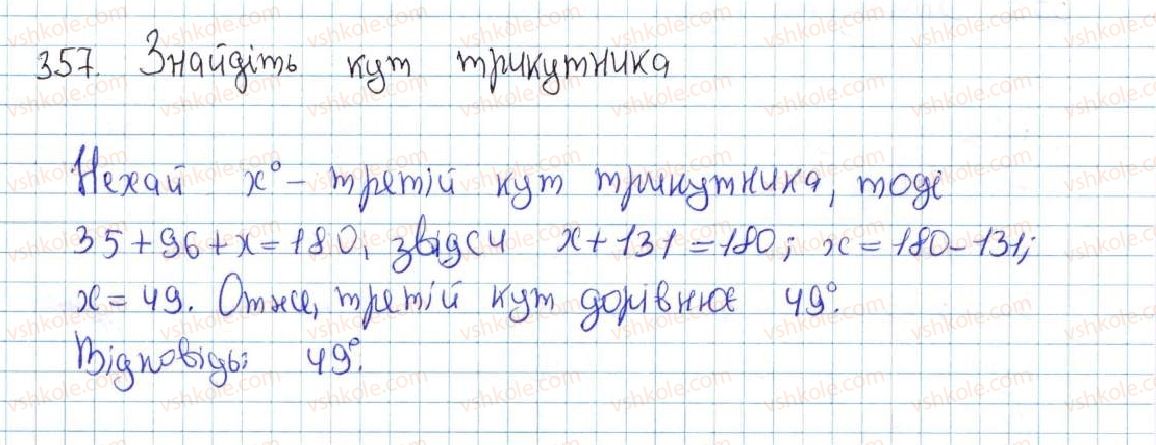 357. Знайдіть кут трикутника
Нехай x° – третій кут трикутника, тоді
35+96+x=180, звідси x+131=180; x=180-131;
x=49. Отже, третій кут дорівнює 49°.
Відповідь: 49°.